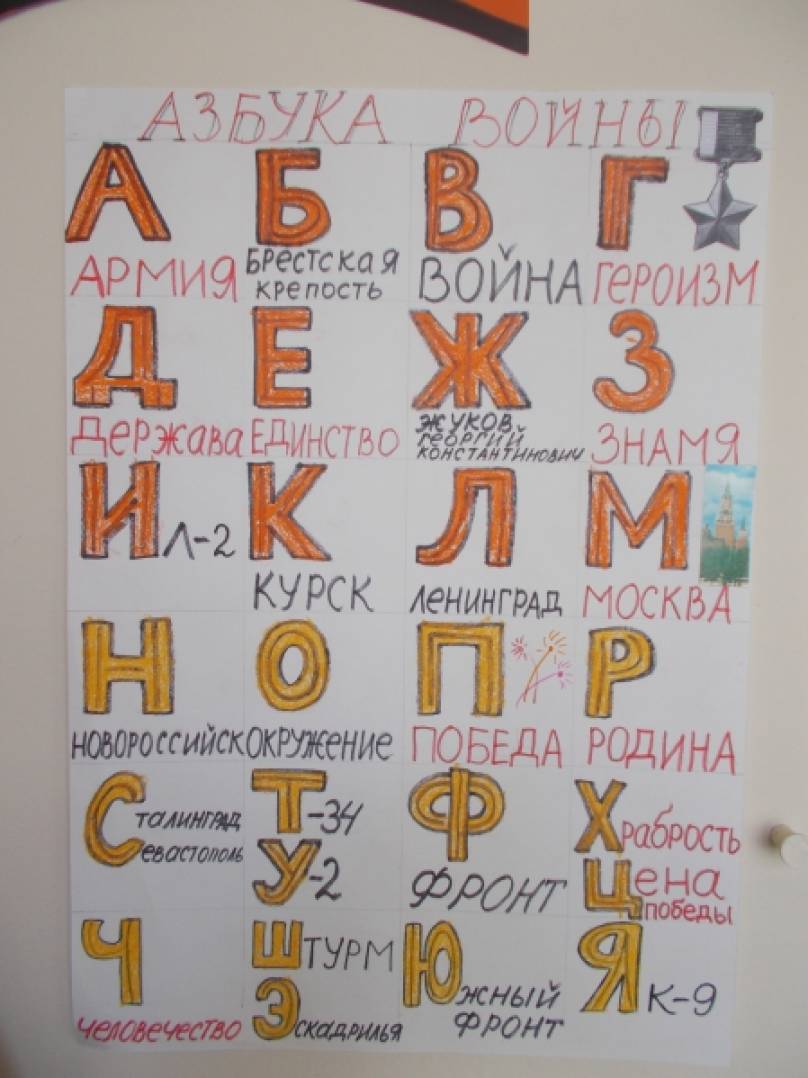 АЗБУКА ВОЙНЫ
А Б В Г
АРМИЯ БРЕСТСКАЯ КРЕПОСТЬ ВОЙНА ГЕРОИЗМ
Д Е Ж З
ДЕРЖАВА ЕДИНСТВО ЖУКОВ ГЕОРГИЙ КОНСТАНТИНОВИЧ ЗНАМЯ
ИЛ-2 К Л М
КУРСК ЛЕНИНГРАД МОСКВА
Н О П Р
НОВОРОССИЙСК ОКРУЖЕНИЕ ПОБЕДА РОДИНА
Сталинград
Севастополь
Т-34
У-2
Ф
ФРОНТ
Храбрость
Цена
победы
Ч
человечество
ШТУРМ
Эскадрилья
Южный
ФРОНТ
ЯК-9